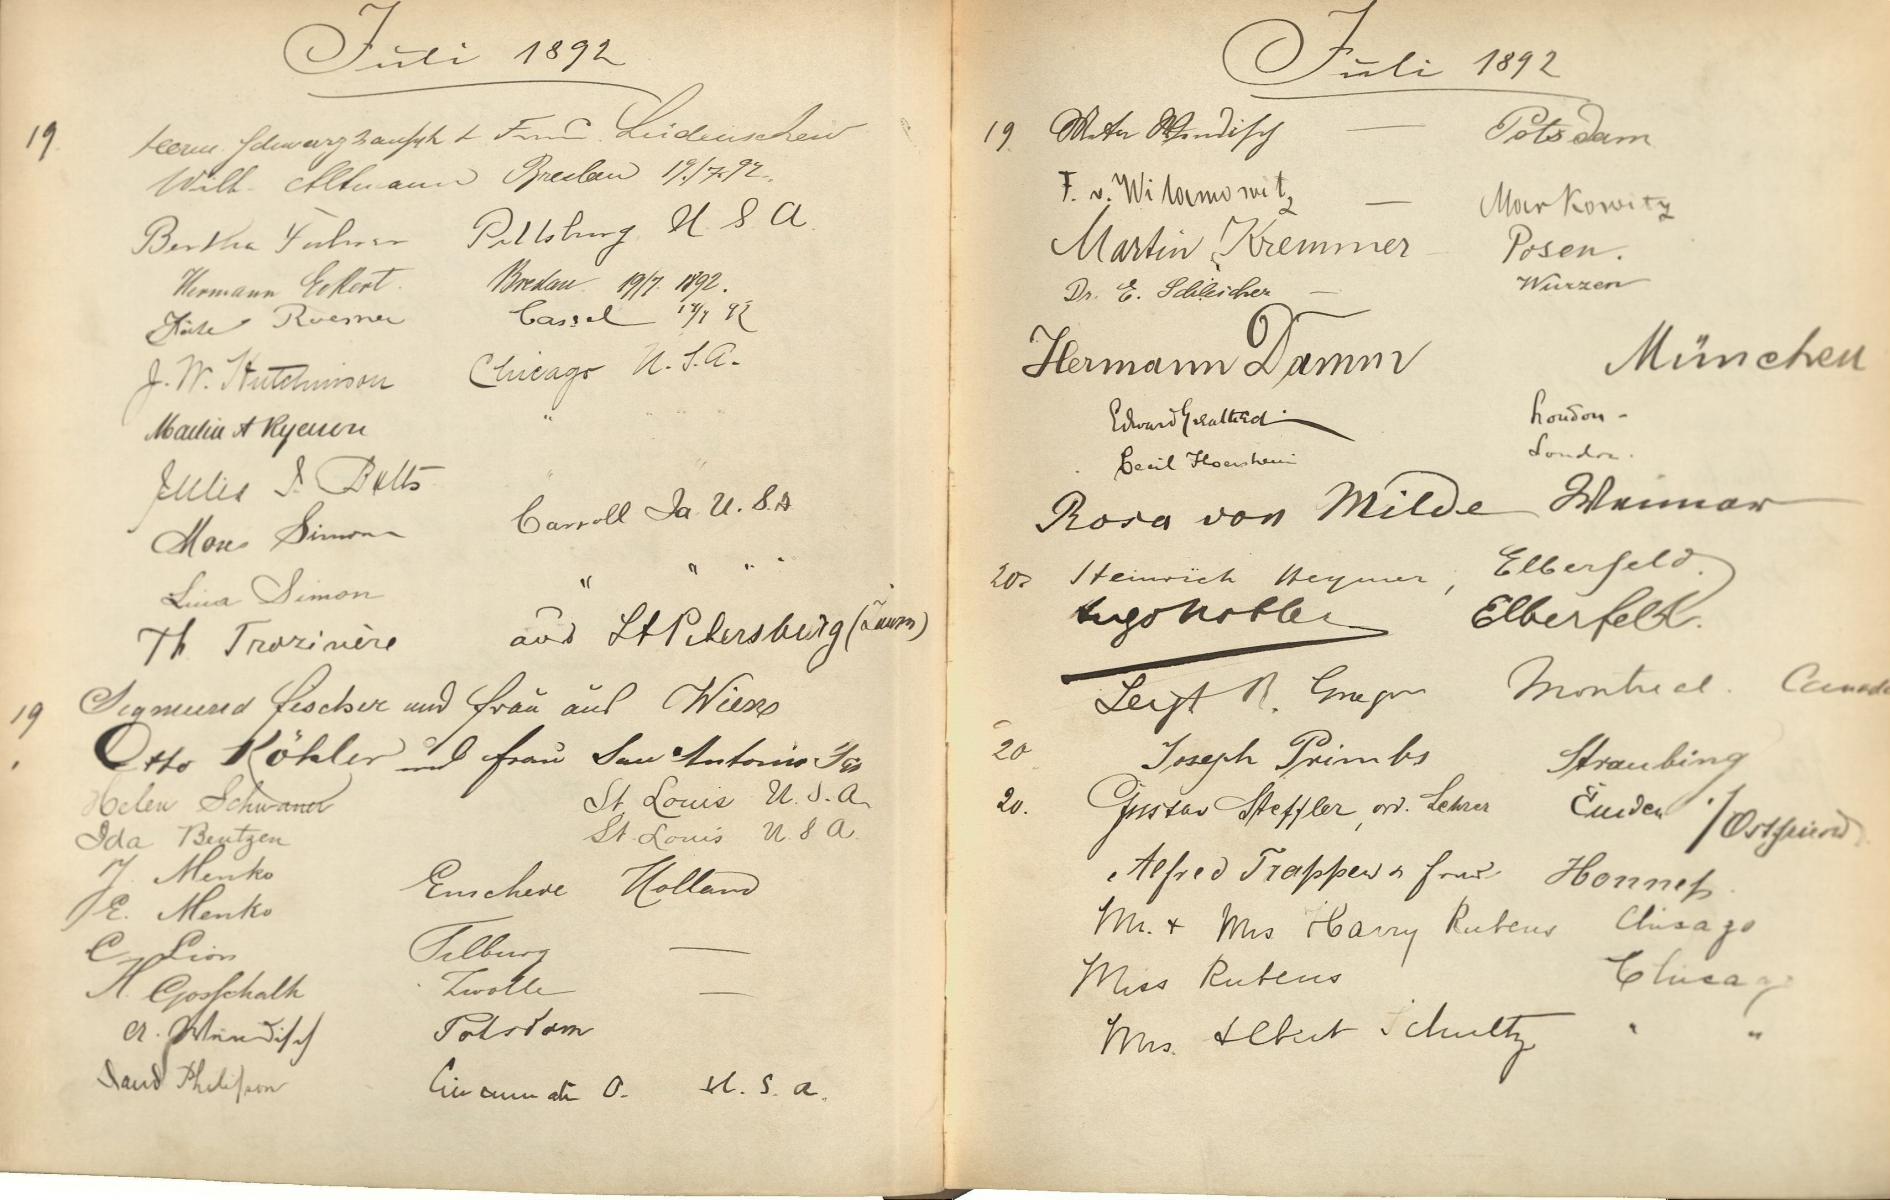 Juli 1892
19. Herm. Schwarzhaupt & Frau Lüdenscheid
Wilh. Altmann Breslau 19/7.92.
Bertha Pittsburg U S A.
Hermann Eckert. Breslau 19/7. 1892.
Käte Roemer Cassel 19/7 92
J. W. Hutchinson Chicago U.S.A.
Martin A Ryerson "
Julia S. Butts " "
Simon Carroll Ia. U.S.A
Lina Simon " " " "
Th Trozinère aus St Petersburg
19 Sigmund Fischer und frau aus Wien
Otto Köhler und frau San Antonio Tex
Helen Schwaner St. Louis U.S.A.
Ida Bentzen St. Louis U S A.
J. Menko
E. Menko Enschede Holland
C. Lion Tilburg —
H. Gosschalk Zwolle —
A. Windisch Potsdam
David Philipson Cincinnati O. U.S.A.
Juli 1892
19 Windisch — Potsdam
F. v. Wilamowitz — Markowitz
Martin Kremmer Posen.
Dr. E. Schleicher — Wurzen
Hermann Damm München
Edward Greathed London -
Cecil London.
Rosa von Milde Weimar
20. Heinrich Heymer, Elberfeld.
Hugo Elberfeld.
Leigh R. Gregor Montreal. Canada
20 Joseph Primbs Straubing
20. Gustav Steffler, ord. Lehrer Emden i/Ostfriesld.
Alfred Trappen & frau Honnef.
Mr. + Mrs Harry Rubens Chicago
Miss Rubens Chicago
Mrs. Albert Schultz " "